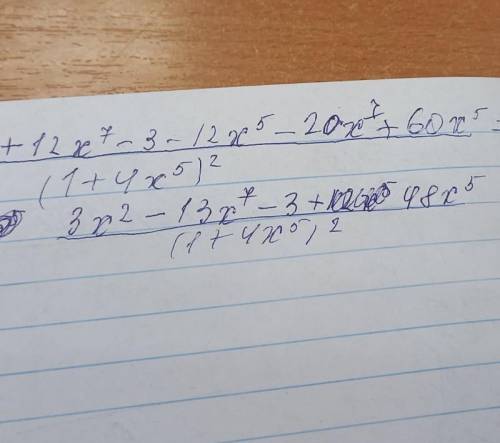 + 12x⁷ - 3 - 12x⁵ - 20x⁷ + 60x⁵ =
(1 + 4x⁵)²
3x² - 13x⁷ - 3 + 48x⁵
(1 + 4x⁵)²